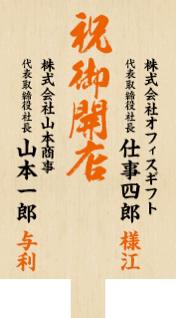 祝御開店
株式会社オフィスギフト
代表取締役社長 仕事四郎 様江
株式会社山本商事
代表取締役社長 山本一郎 与利